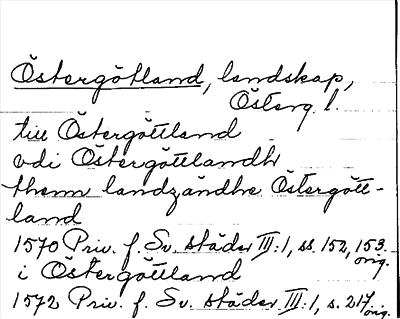 Östergötland, landskap,
Österg. l.
till Östergöttland
vdi Östergöttlandh
themn landzändhe Östergött-
land
1570 Priv. f. Sv. städer III:1, ss. 152, 153.
orig.
i Östergöttland
1572 Priv. f. Sv. städer III:1, s. 217, orig.